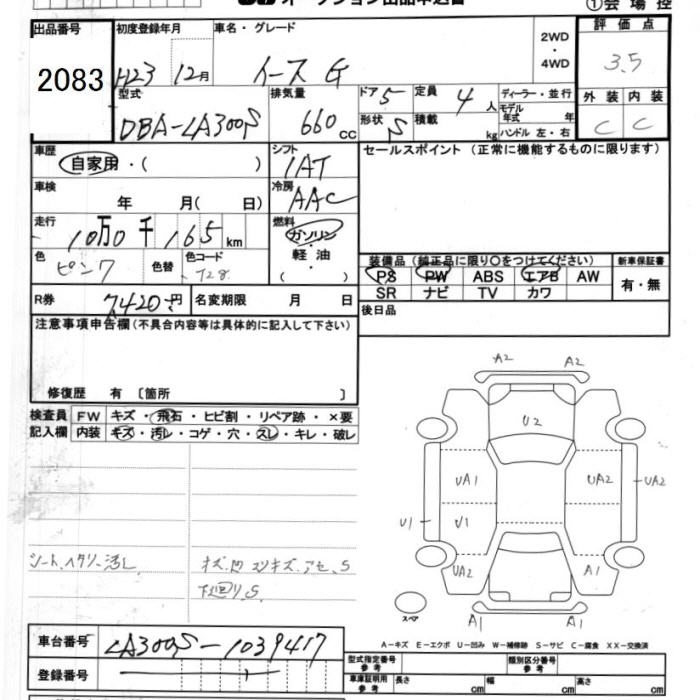 オークション出品申込書 ①会場控
出品番号 初度登録年月 車名・グレード 2WD・4WD 評価点
2083 H23 12月 イース G 3.5
型式 排気量 ドア 5 定員 4人 ディーラー・並行 外装 内装
DBA-LA300S 660cc 形状 S 積載 kg モデル年式 年 C C
ハンドル 左・右
車歴 シフト セールスポイント (正常に機能するものに限ります)
自家用・( ) IAT
車検 冷房
年 月( 日) AAC
走行 燃料
10万0千165km ガソリン・軽油・( )
色 ピンク 色替 色コード T28 装備品 (純正品に限り〇をつけてください) 新車保証書
PS PW ABS エアB AW 有・無
SR ナビ TV カワ
R券 7,420円 名変期限 月 日 後日品
注意事項申告欄(不具合内容等は具体的に記入して下さい)
修復歴 有 〔箇所 〕
検査員 FW キズ・飛石・ヒビ割・リペア跡・×要
記入欄 内装 キズ・汚レ・コゲ・穴・スレ・キレ・破レ
A2 A2
U2
UA1 UA2 UA2
U1 U1
UA2 A1
スペア A1 A1
シート、ヘタリ、汚レ キズ、凹 スリキズ、アセ、S
下廻リS
A-キズ E-エクボ U-凹み W-補修跡 S-サビ C-腐食 XX-交換済
車台番号 LA300S-1039417
登録番号 型式指定番号 参考 類別区分番号 参考
車庫証明用 参考 長さ cm 幅 cm 高さ cm